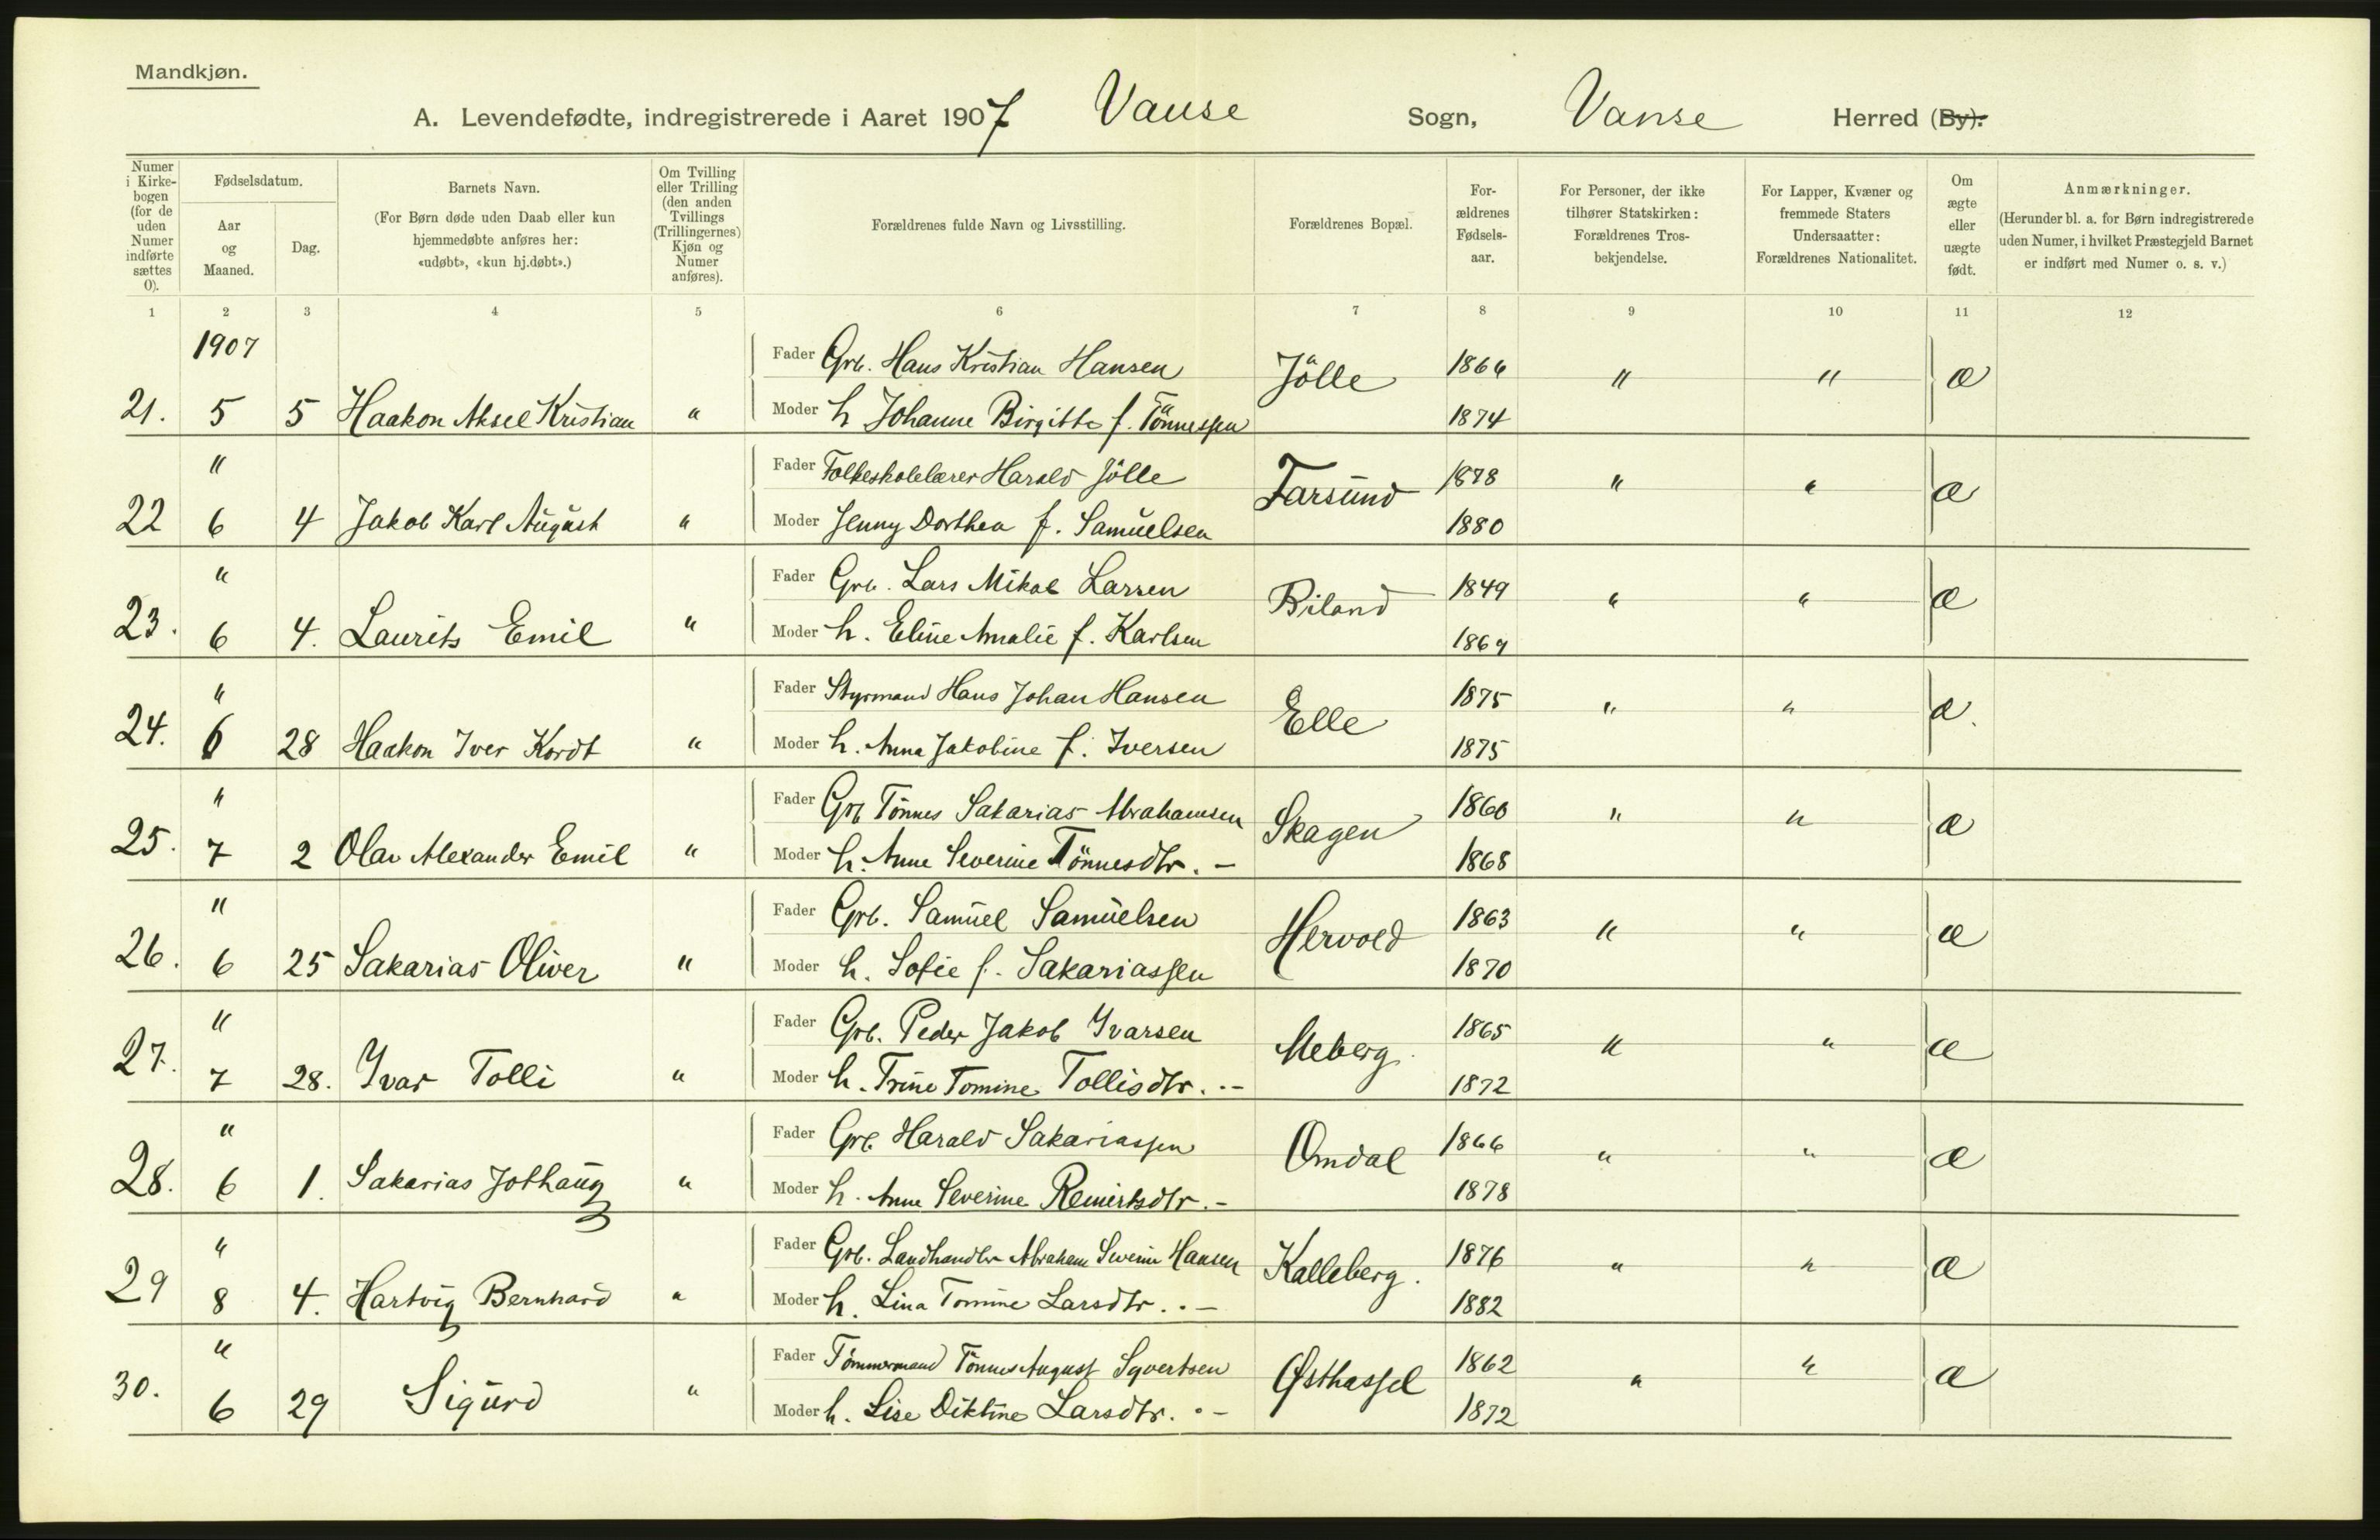 Mandkjøn.
A. Levendefødte, indregistrerede i Aaret 1907 Vanse Sogn, Vanse Herred (By).
Numer i Kirkebogen (for de uden Numer indførte sættes 0).
Fødselsdatum.
Aar og Maaned.
Dag.
Barnets Navn.
(For Børn døde uden Daab eller kun hjemmedøbte anføres her: «udøbt», «kun hj.døbt».)
Om Tvilling eller Trilling (den anden Tvillings (Trillingernes) Kjøn og Numer anføres).
Forældrenes fulde Navn og Livsstilling.
Forældrenes Bopæl.
Forældrenes Fødselsaar.
For Personer, der ikke tilhører Statskirken: Forældrenes Trosbekjendelse.
For Lapper, Kvæner og fremmede Staters Undersaatter: Forældrenes Nationalitet.
Om ægte eller uægte født.
Anmærkninger.
(Herunder bl. a. for Børn indregistrerede uden Numer, i hvilket Præstegjeld Barnet er indført med Numer o. s. v.)
1 2 3 4 5 6 7 8 9 10 11 12
1907
Fader Grb. Hans Kristian Hansen Jölle 1866 " " æ
21. 5 5 Haakon Aksel Kristian " Moder h Johanne Birgitte f. Tönnessen 1874
" Fader Folkeskolelærer Harald Jölle Farsund 1878 " " æ
22 6 4 Jakob Karl August " Moder Jenny Dorthea f. Samuelsen 1880
" Fader Grb. Lars Mikal Larsen Biland 1849 " " æ
23. 6 4. Laurits Emil " Moder h. Eline Amalie f. Karlsen 1869
" Fader Styrmand Hans Johan Hansen Elle 1875 " " æ.
24. 6 28 Haakon Iver Kordt " Moder h. Anna Jakobine f. Iversen 1875
" Fader Grb Tönnes Sakarias Abrahamsen Skagen 1860 " " æ
25. 7 2 Olav Alexander Emil " Moder h. Anne Severine Tönnesdtr. –
1868
" Fader Grb. Samuel Samuelsen Hervold 1863 " " æ
26. 6 25 Sakarias Oliver " Moder h. Sofie f. Sakariassen 1870
" Fader Grb. Peder Jakob Ivarsen Meberg. 1865 " " æ
27. 7 28. Ivar Tolli " Moder h. Trine Tomine Tollisdtr. . – 1872
" Fader Grb. Harald Sakariassen Omdal 1866 " " æ
28. 6 1. Sakarias Jothaug " Moder h. Anne Severine Reinertsdtr. – 1878
" Fader Grb. Landhandler Abraham Severin Hansen Kalleberg. 1876 " " æ
29 8 4. Hartvig Bernhard " Moder h. Lina Tomine Larsdtr. . – 1882
" Fader Tömmermand Tönnes August Syvertsen Østhassel 1862 " " æ
30. 6 29 Sigurd " Moder h. Lise Diktine Larsdtr. . – 1872